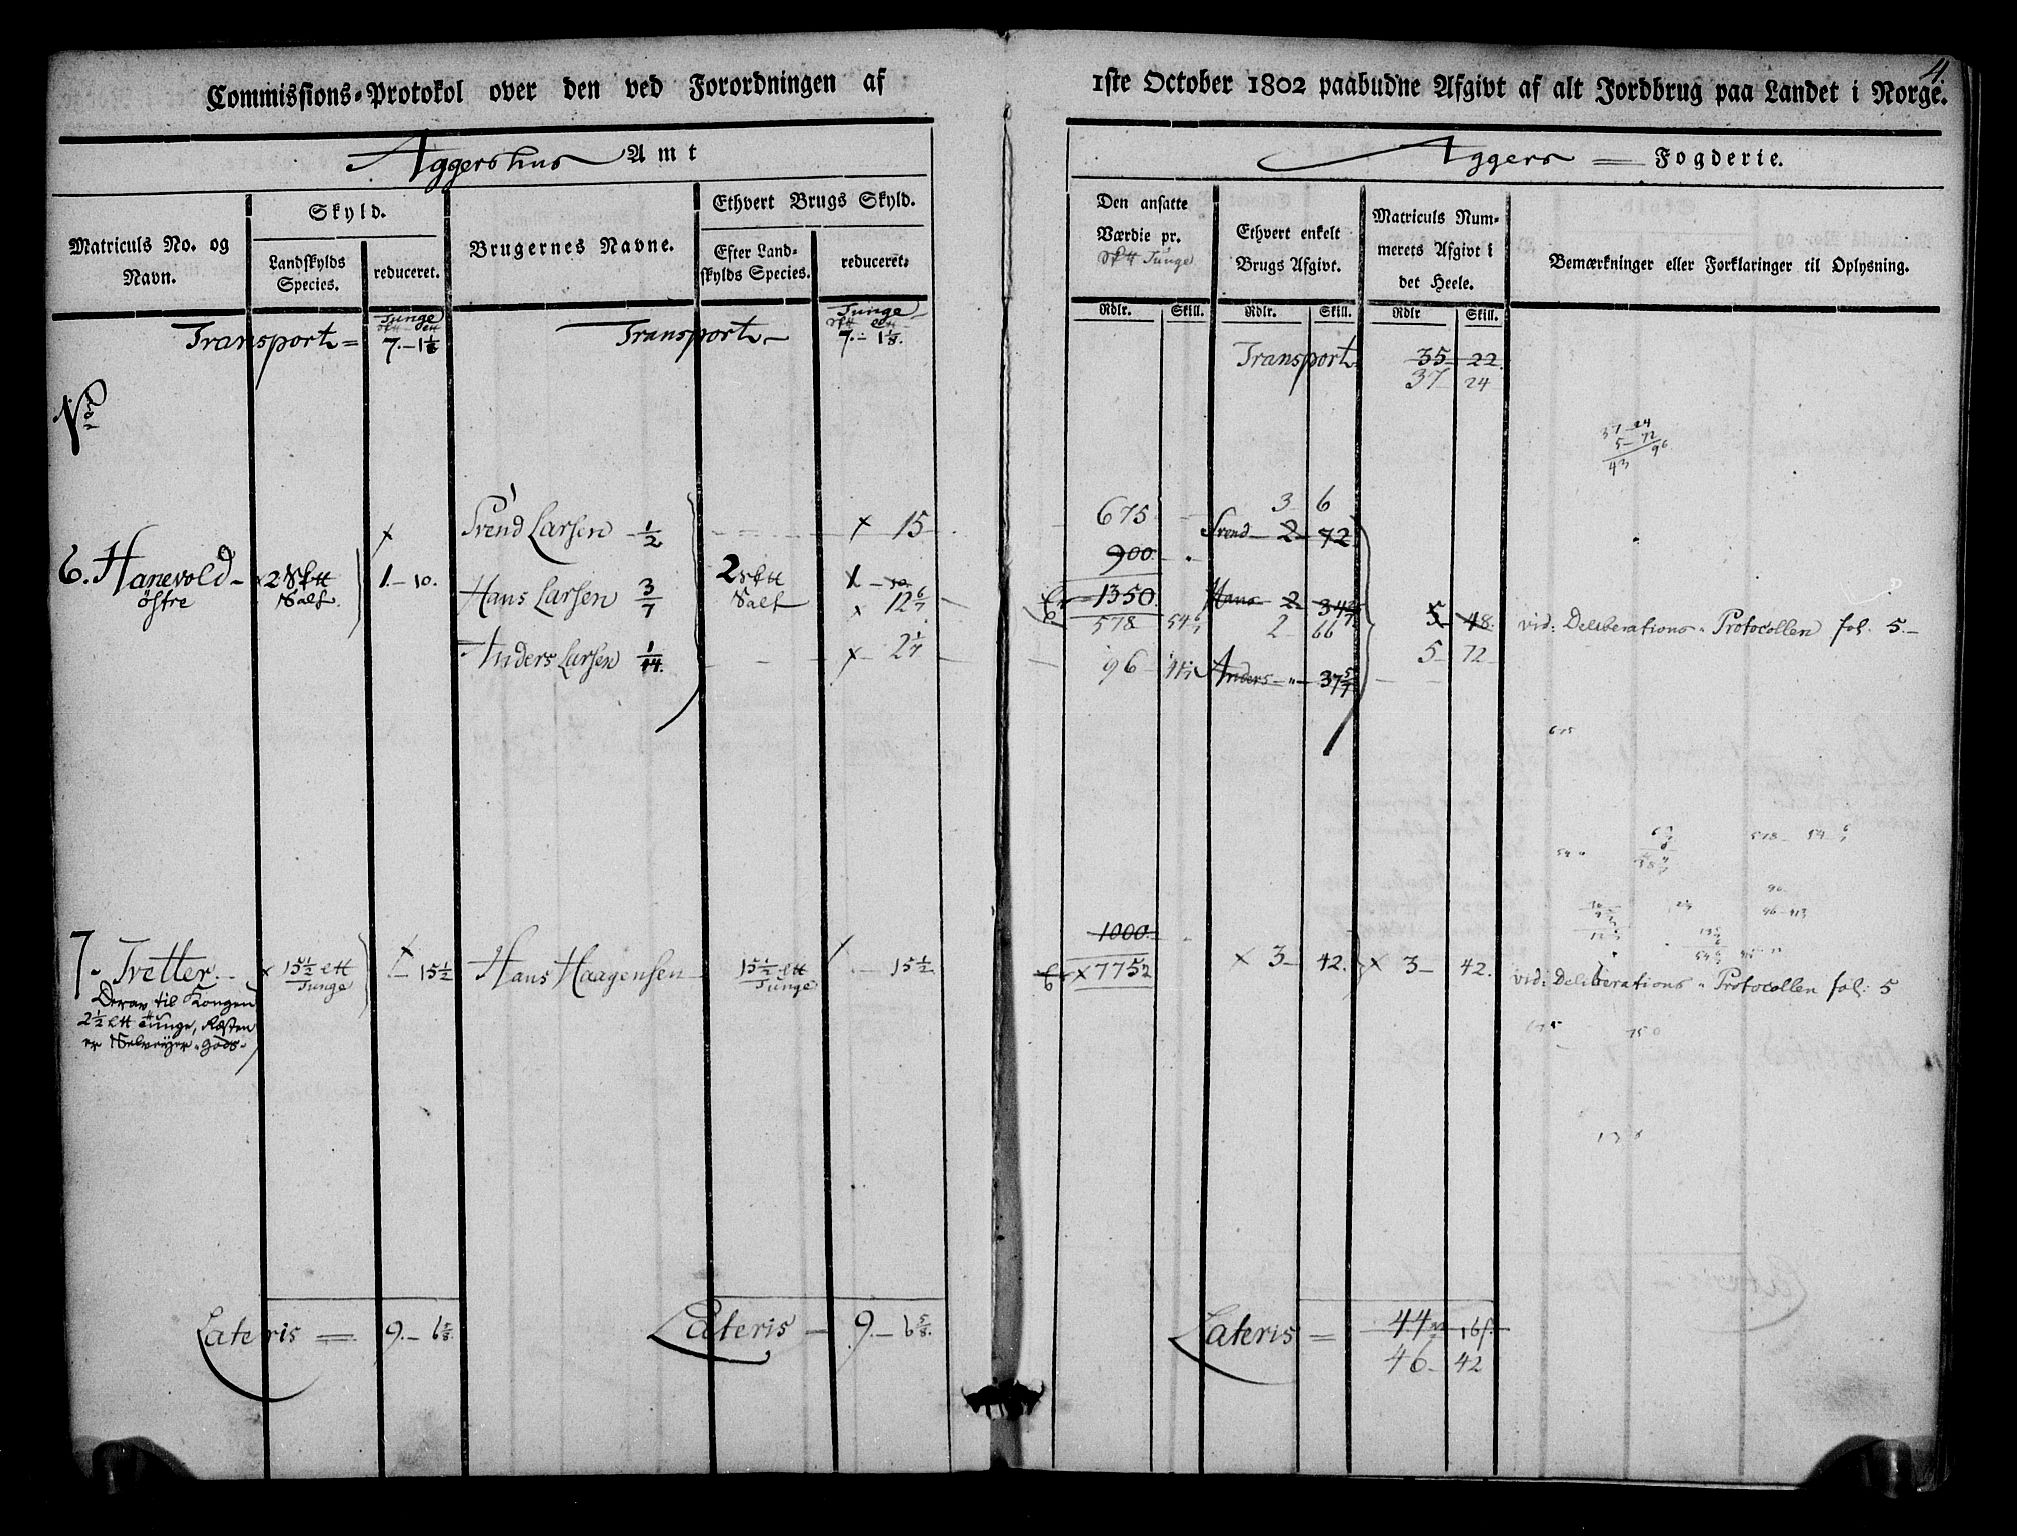 4.
Commissions-Protokol over den ved Forordningen af
1ste October 1802 paabudne Afgivt af alt Jordbrug paa Landet i Norge.
Aggershus Amt
Aggers Fogderie.
Matriculs No. og Navn.
Skyld.
Landskylds Species.
reduceret.
Brugernes Navne.
Ethvert Brugs Skyld.
Efter Landskylds Species.
reduceret.
Den ansatte Værdie pr. Tunge
Ethvert enkelt Brugs Afgivt.
Matriculs Nummerets Afgivt i det Heele.
Bemærkninger eller Forklaringer til Oplysning.
Rdlr. Skill. Rdlr. Skill. Rdlr Skill.
Transport = Tunge 7.-1 1/8 Transport - Tunge 7.-1 1/8.
Transport 35 22.
37 24
37-24
5-72
43 96
Svend Larsen 1/2 x 15 675 3 6
Svend 2 72
6. Hanevold 2 1.-10. 2 1-10. 900
østre Salt. Hans Larsen 3/7 Salt x 12 6/7 1350 Hans 2 34 2/7
578 54 6/7 2 66 5 48. vid: Deliberations-Protocollen fol. 5.-
Anders Larsen 1/14. x 2 1/7 96 Anders - " - 37 5/7 5 72
675
1000.
7. Tvetter. x 15 1/2 Tunge - 15 1/2 Hans Haagensen 15 1/2 Tunge - 15 1/2 x 775 x 3- 42. x 3- 42. vid: Deliberations-Protocollen fol: 5
Derav til Kongen
2 1/2 Tunge, Resten
er Selveyer-gods-
Lateris = 9.-6 5/8. Lateris - 9.-6 5/8. Lateris = 44 16
46- 42